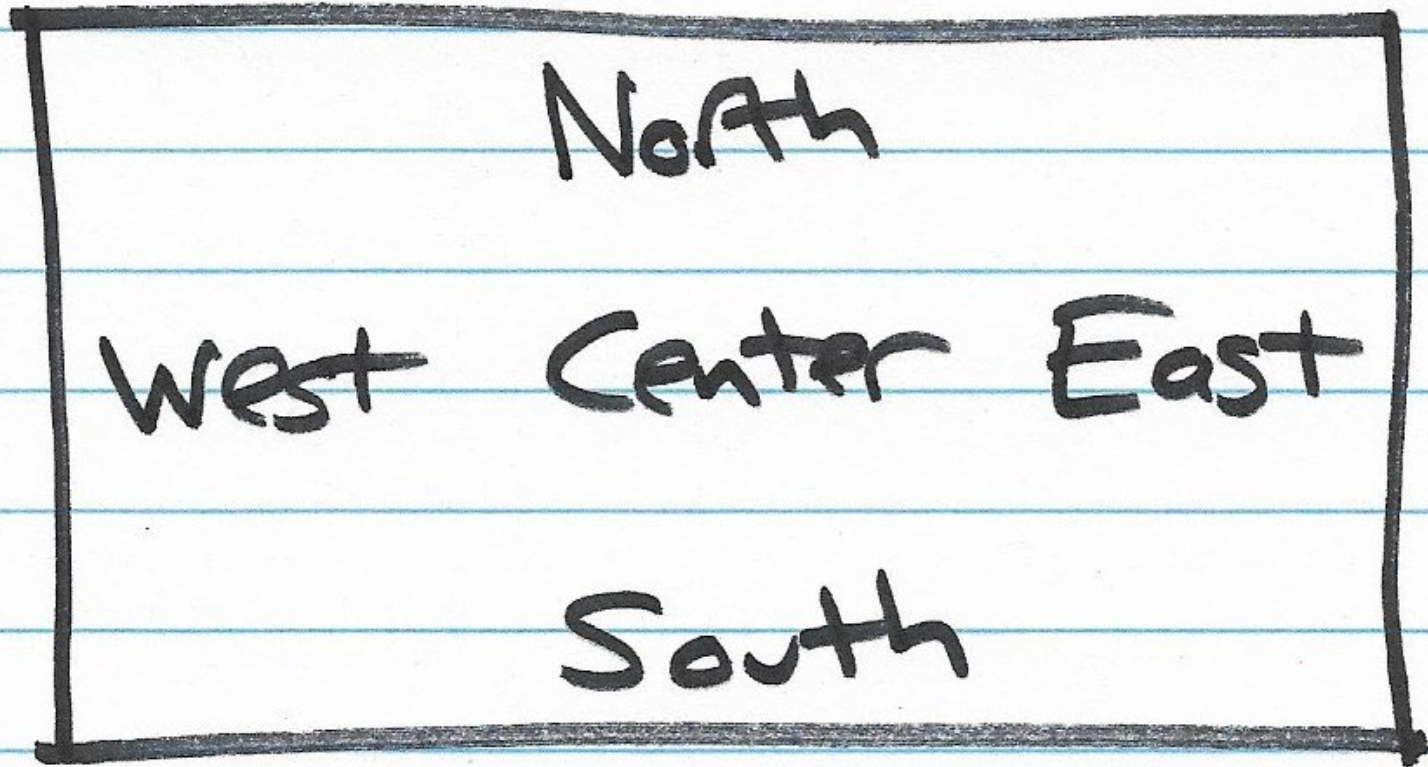 North
West Center East
South